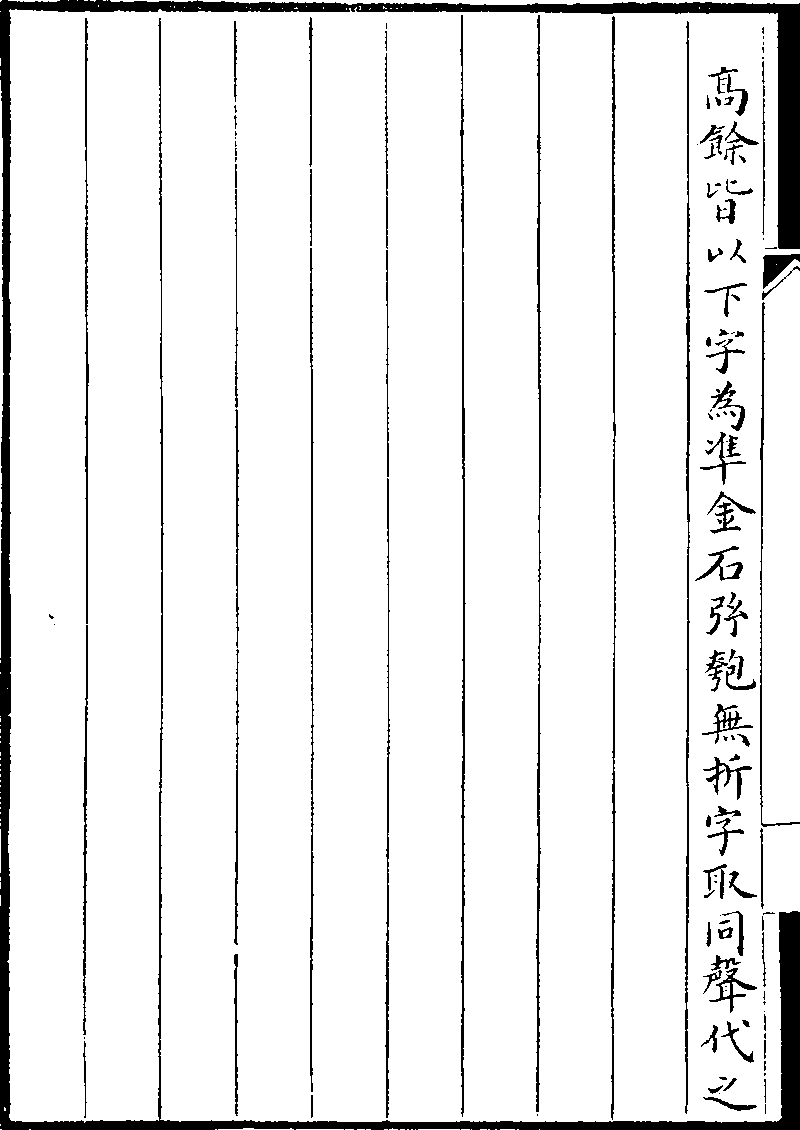 髙餘皆以下字為準金石𢎺匏無折字取同聲代之